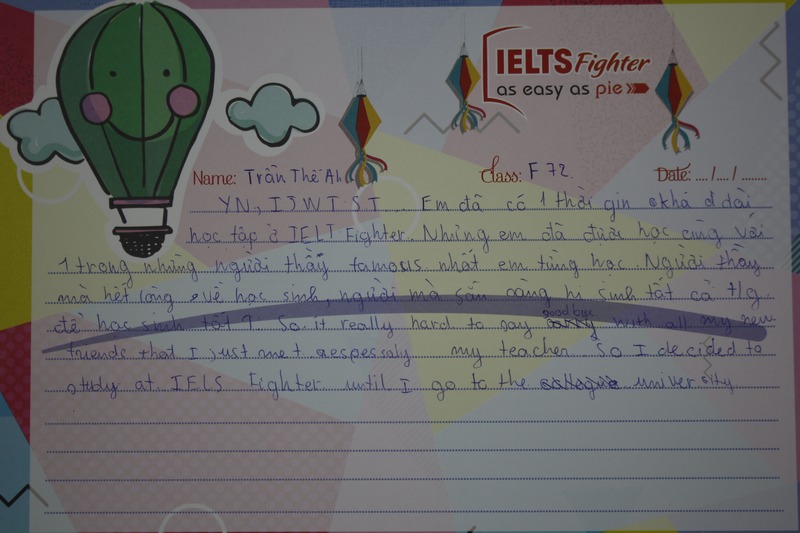 IELTS Fighter
as easy as pie
Name: Trần Thế Anh Class: F 72. Date: ..../..../........
YN, I J W T S T ... Em đã có 1 thời gin khá dài
học tập ở IELT Fighter. Nhưng em đã được học cùng với
1 trong những người thầy famous nhất em từng học. Người thầy
mà hết lòng vè học sinh, người mà sẵn sàng hi sinh tất cả t/g
để học sinh tốt ?. So it really hard to say goodbye with all my new
friends that I just met respessaly my teacher. So I decided to
study at IELS Fighter until I go to the university